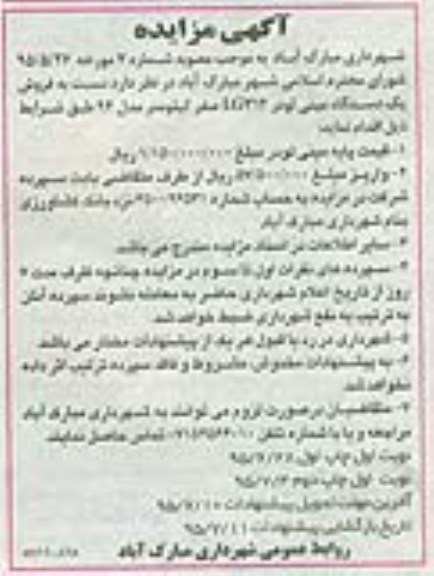 آگهی مزایده
شهرداری مبارک آباد به موجب مصوبه شماره ۷ مورخه ۹۵/۵/۲۳
شورای محترم اسلامی شهر مبارک آباد در نظر دارد نسبت به فروش
یک دستگاه مینی لودر صفر کیلومتر مدل ۹۴ طبق شرایط
ذیل اقدام نماید:
۱- قیمت پایه مینی لودر مبلغ ۱/۱۵۰/۰۰۰/۰۰۰ ریال
۲- واریز مبلغ ۵۷/۵۰۰/۰۰۰ ریال از طرف متقاضی بابت سپرده
شرکت در مزایده به حساب شماره نزد بانک کشاورزی
بنام شهرداری مبارک آباد
۳- سایر اطلاعات در اسناد مزایده مندرج می باشد.
۴- سپرده های نفرات اول تا سوم در مزایده چنانچه ظرف مدت ۷
روز از تاریخ اعلام شهرداری حاضر به معامله نشوند سپرده آنان
به ترتیب به نفع شهرداری ضبط خواهد شد.
۵- شهرداری در رد یا قبول هر یک از پیشنهادات مختار می باشد.
۶- به پیشنهادات مخدوش، مشروط و فاقد سپرده ترتیب اثر داده
نخواهد شد.
۷- متقاضیان درصورت لزوم می توانند به شهرداری مبارک آباد
مراجعه و یا با شماره تلفن تماس حاصل نمایند.
نوبت اول چاپ اول: ۹۵/۶/۲۷
نوبت اول چاپ دوم: ۹۵/۷/۳
آخرین مهلت تحویل پیشنهادات: ۹۵/۷/۱۰
تاریخ بازگشایی پیشنهادات: ۹۵/۷/۱۱
روابط عمومی شهرداری مبارک آباد